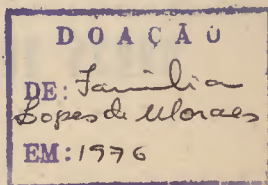 DOAÇÃO
DE: Família
Lopes de Moraes
EM: 1976